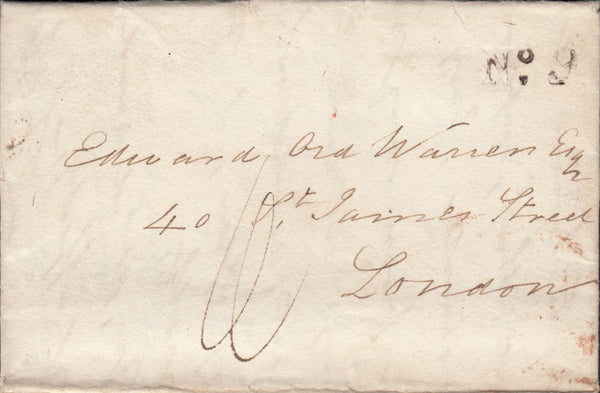 No. 9
Edward Ord Warren Esqr
40 St. James Street
London